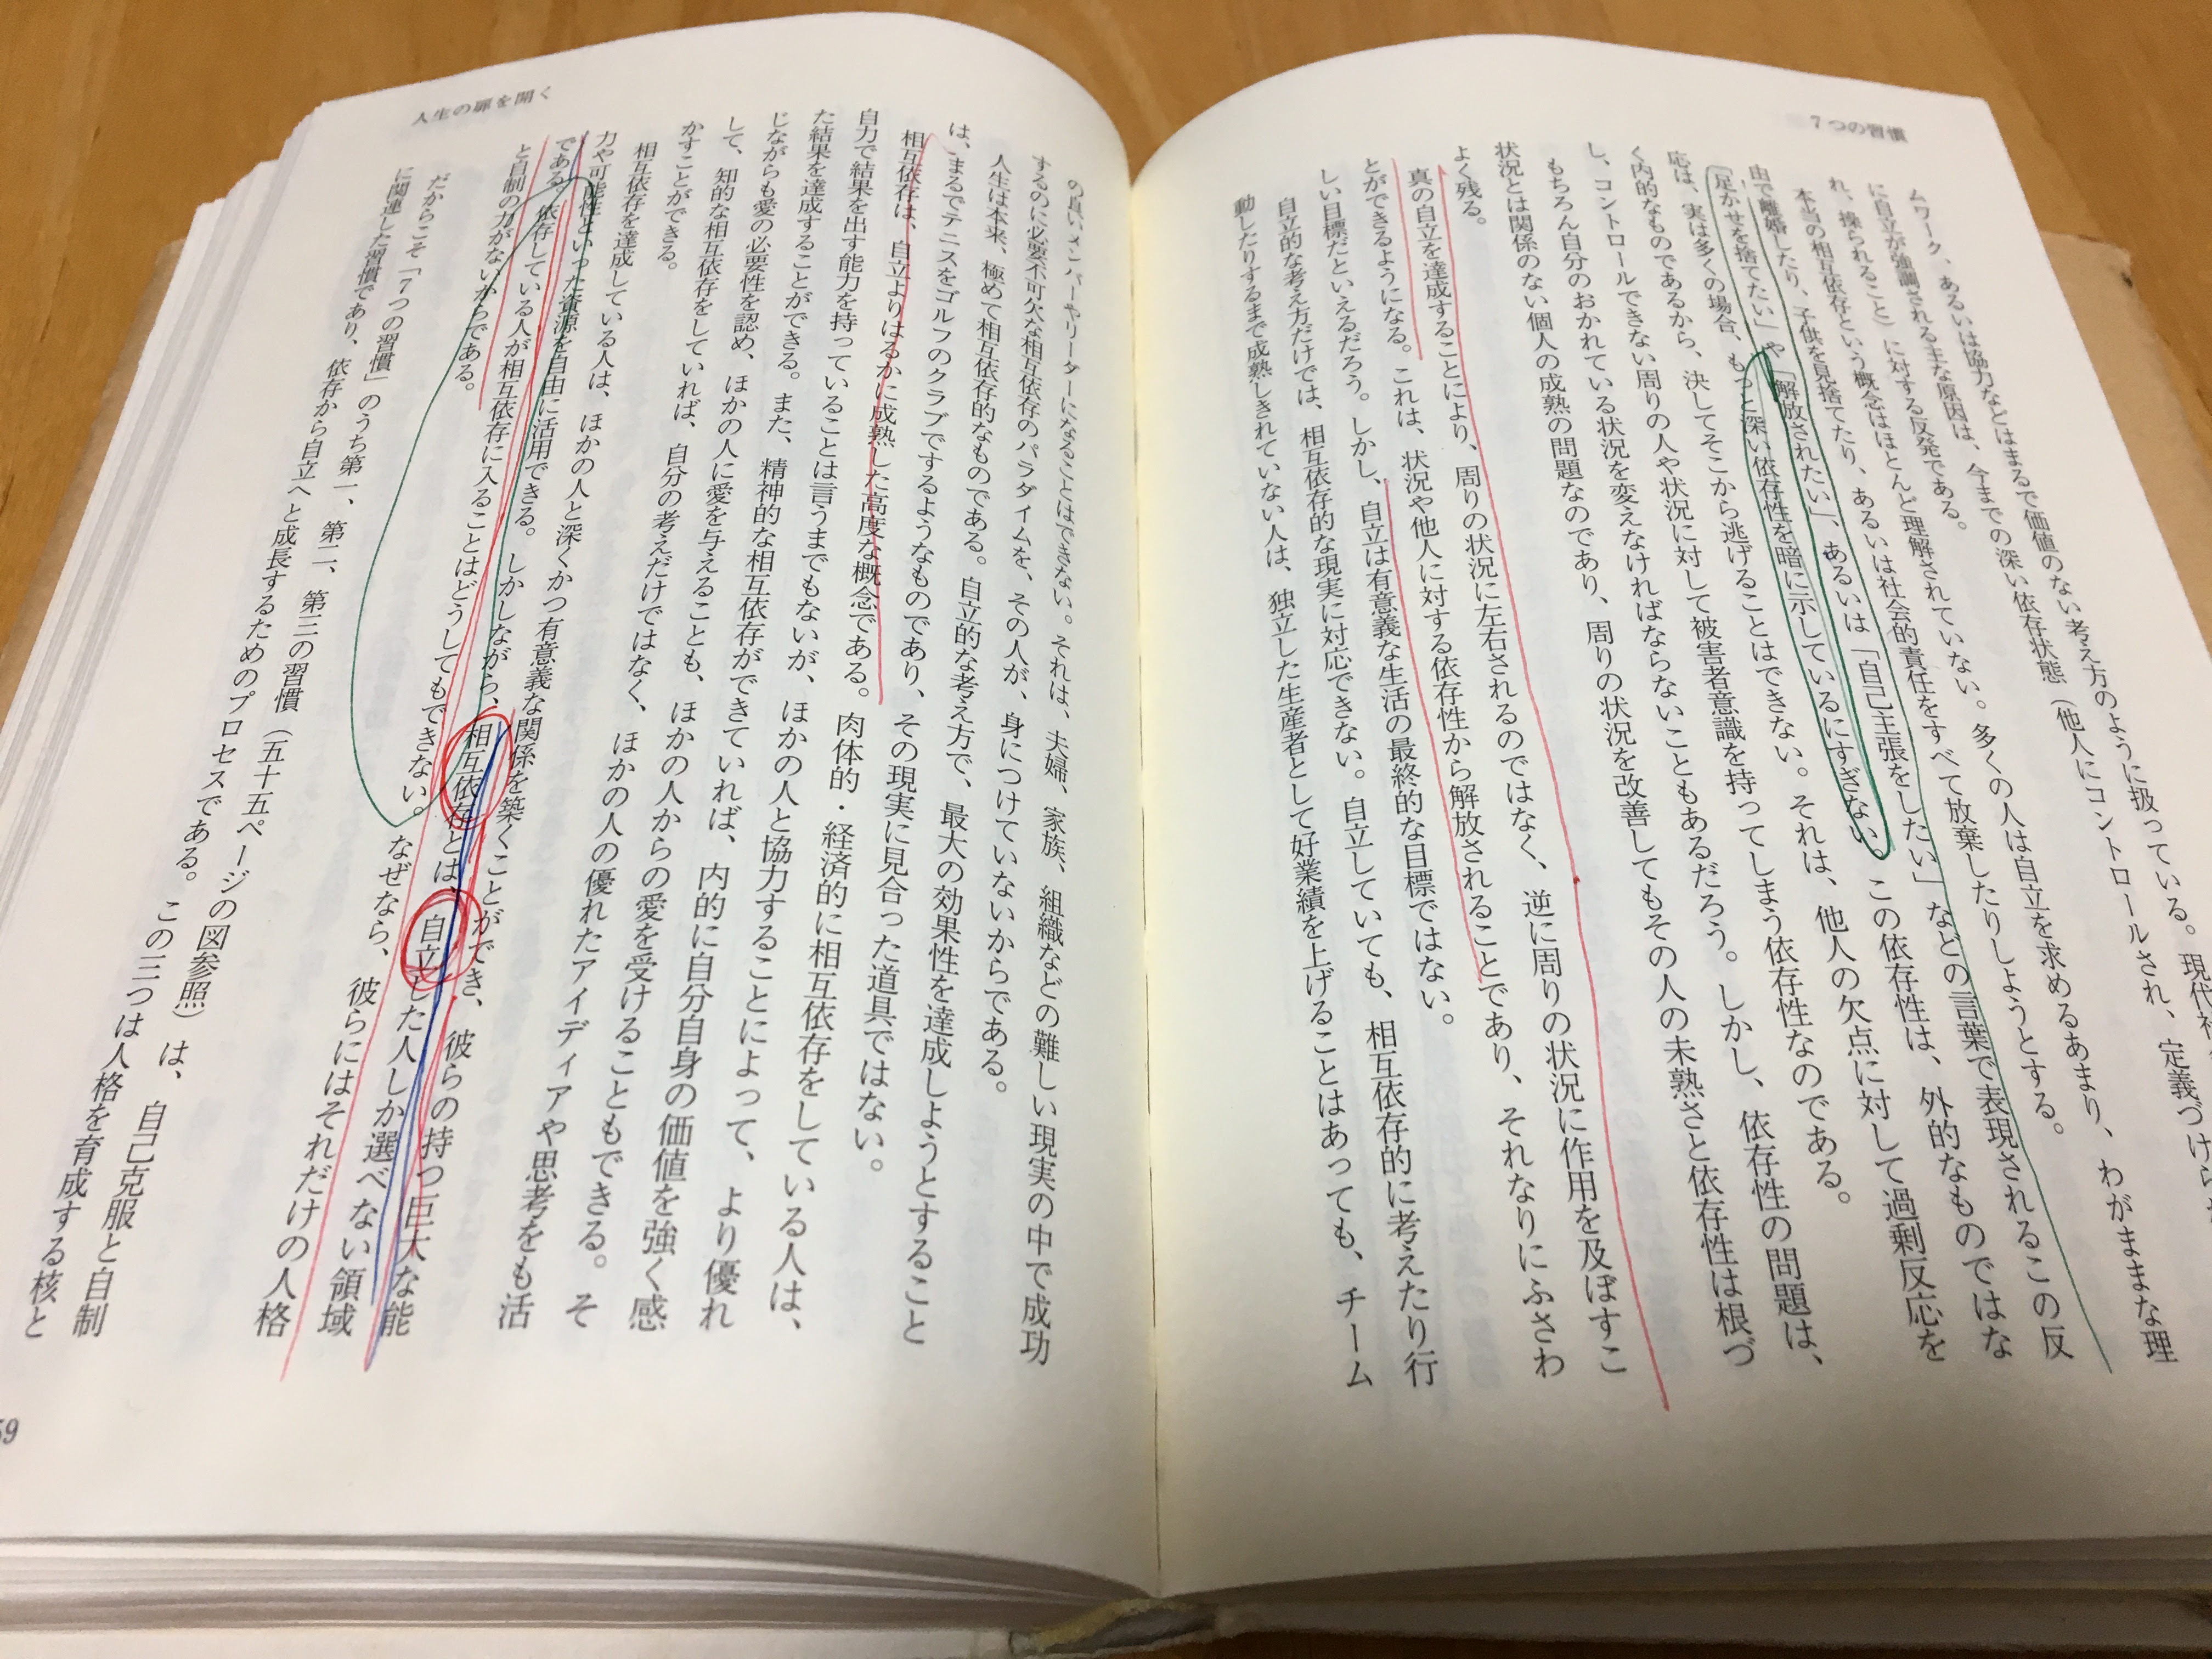 7つの習慣
ムワーク、あるいは協力などとはまるで価値のない考え方のように扱っている。現代社
に自立が強調される主な原因は、今までの深い依存状態（他人にコントロールされ、定義づけら
れ、操られること）に対する反発である。
本当の相互依存という概念はほとんど理解されていない。多くの人は自立を求めるあまり、わがままな理
由で離婚したり、子供を見捨てたり、あるいは社会的責任をすべて放棄したりしようとする。
「足かせを捨てたい」や「解放されたい」、あるいは「自己主張をしたい」などの言葉で表現されるこの反
応は、実は多くの場合、もっと深い依存性を暗に示しているにすぎない。この依存性は、外的なものではな
く内的なものであるから、決してそこから逃げることはできない。それは、他人の欠点に対して過剰反応を
し、コントロールできない周りの人や状況に対して被害者意識を持ってしまう依存性なのである。
もちろん自分のおかれている状況を変えなければならないこともあるだろう。しかし、依存性の問題は、
状況とは関係のない個人の成熟の問題なのであり、周りの状況を改善してもその人の未熟さと依存性は根づ
よく残る。
真の自立を達成することにより、周りの状況に左右されるのではなく、逆に周りの状況に作用を及ぼすこ
とができるようになる。これは、状況や他人に対する依存性から解放されることであり、それなりにふさわ
しい目標だといえるだろう。しかし、自立は有意義な生活の最終的な目標ではない。
自立的な考え方だけでは、相互依存的な現実に対応できない。自立していても、相互依存的に考えたり行
動したりするまで成熟しきれていない人は、独立した生産者として好業績を上げることはあっても、チーム
人生の扉を開く
の良いメンバーやリーダーになることはできない。それは、夫婦、家族、組織などの難しい現実の中で成功
するのに必要不可欠な相互依存のパラダイムを、その人が、身につけていないからである。
人生は本来、極めて相互依存的なものである。自立的な考え方で、最大の効果性を達成しようとすること
は、まるでテニスをゴルフのクラブでするようなものであり、その現実に見合った道具ではない。
相互依存は、自立よりはるかに成熟した高度な概念である。肉体的・経済的に相互依存をしている人は、
自力で結果を出す能力を持っていることは言うまでもないが、ほかの人と協力することによって、より優れ
た結果を達成することができる。また、精神的な相互依存ができていれば、内的に自分自身の価値を強く感
じながらも愛の必要性を認め、ほかの人に愛を与えることも、ほかの人からの愛を受けることもできる。そ
して、知的な相互依存をしていれば、自分の考えだけではなく、ほかの人の優れたアイディアや思考をも活
かすことができる。
相互依存を達成している人は、ほかの人と深くかつ有意義な関係を築くことができ、彼らの持つ巨大な能
力や可能性といった資源を自由に活用できる。しかしながら、相互依存とは、自立した人しか選べない領域
である。依存している人が相互依存に入ることはどうしてもできない。なぜなら、彼らにはそれだけの人格
と自制の力がないからである。
だからこそ「7つの習慣」のうち第一、第二、第三の習慣（五十五ページの図参照）は、自己克服と自制
に関連した習慣であり、依存から自立へと成長するためのプロセスである。この三つは人格を育成する核と
59